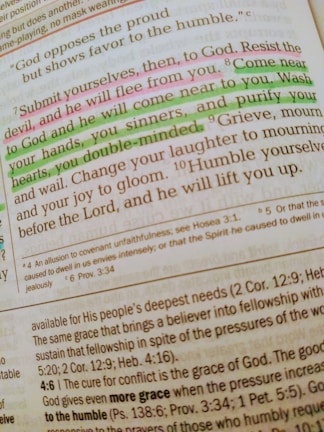 their position
ing but does another.
me-playing, no mask wearing
"God opposes the proud
but shows favor to the humble."c
7Submit yourselves, then, to God. Resist the
devil, and he will flee from you. 8Come near
to God and he will come near to you. Wash
your hands, you sinners, and purify your
hearts, you double-minded. 9Grieve, mourn
and wail. Change your laughter to mourning
and your joy to gloom. 10Humble yourselve
before the Lord, and he will lift you up.
a 4 An allusion to covenant unfaithfulness; see Hosea 3:1. b 5 Or that the
caused to dwell in us envies intensely; or that the Spirit he caused to dwell in
jealously c 6 Prov. 3:34
available for His people's deepest needs (2 Cor. 12:9; Heb
The same grace that brings a believer into fellowship with
sustain that fellowship in spite of the pressures of the wo
5:20; 2 Cor. 12:9; Heb. 4:16).
4:6 | The cure for conflict is the grace of God. The good
God gives even more grace when the pressure increas
to the humble (Ps. 138:6; Prov. 3:34; 1 Pet. 5:5). Go
responsive to the prayers of those who humbly reque